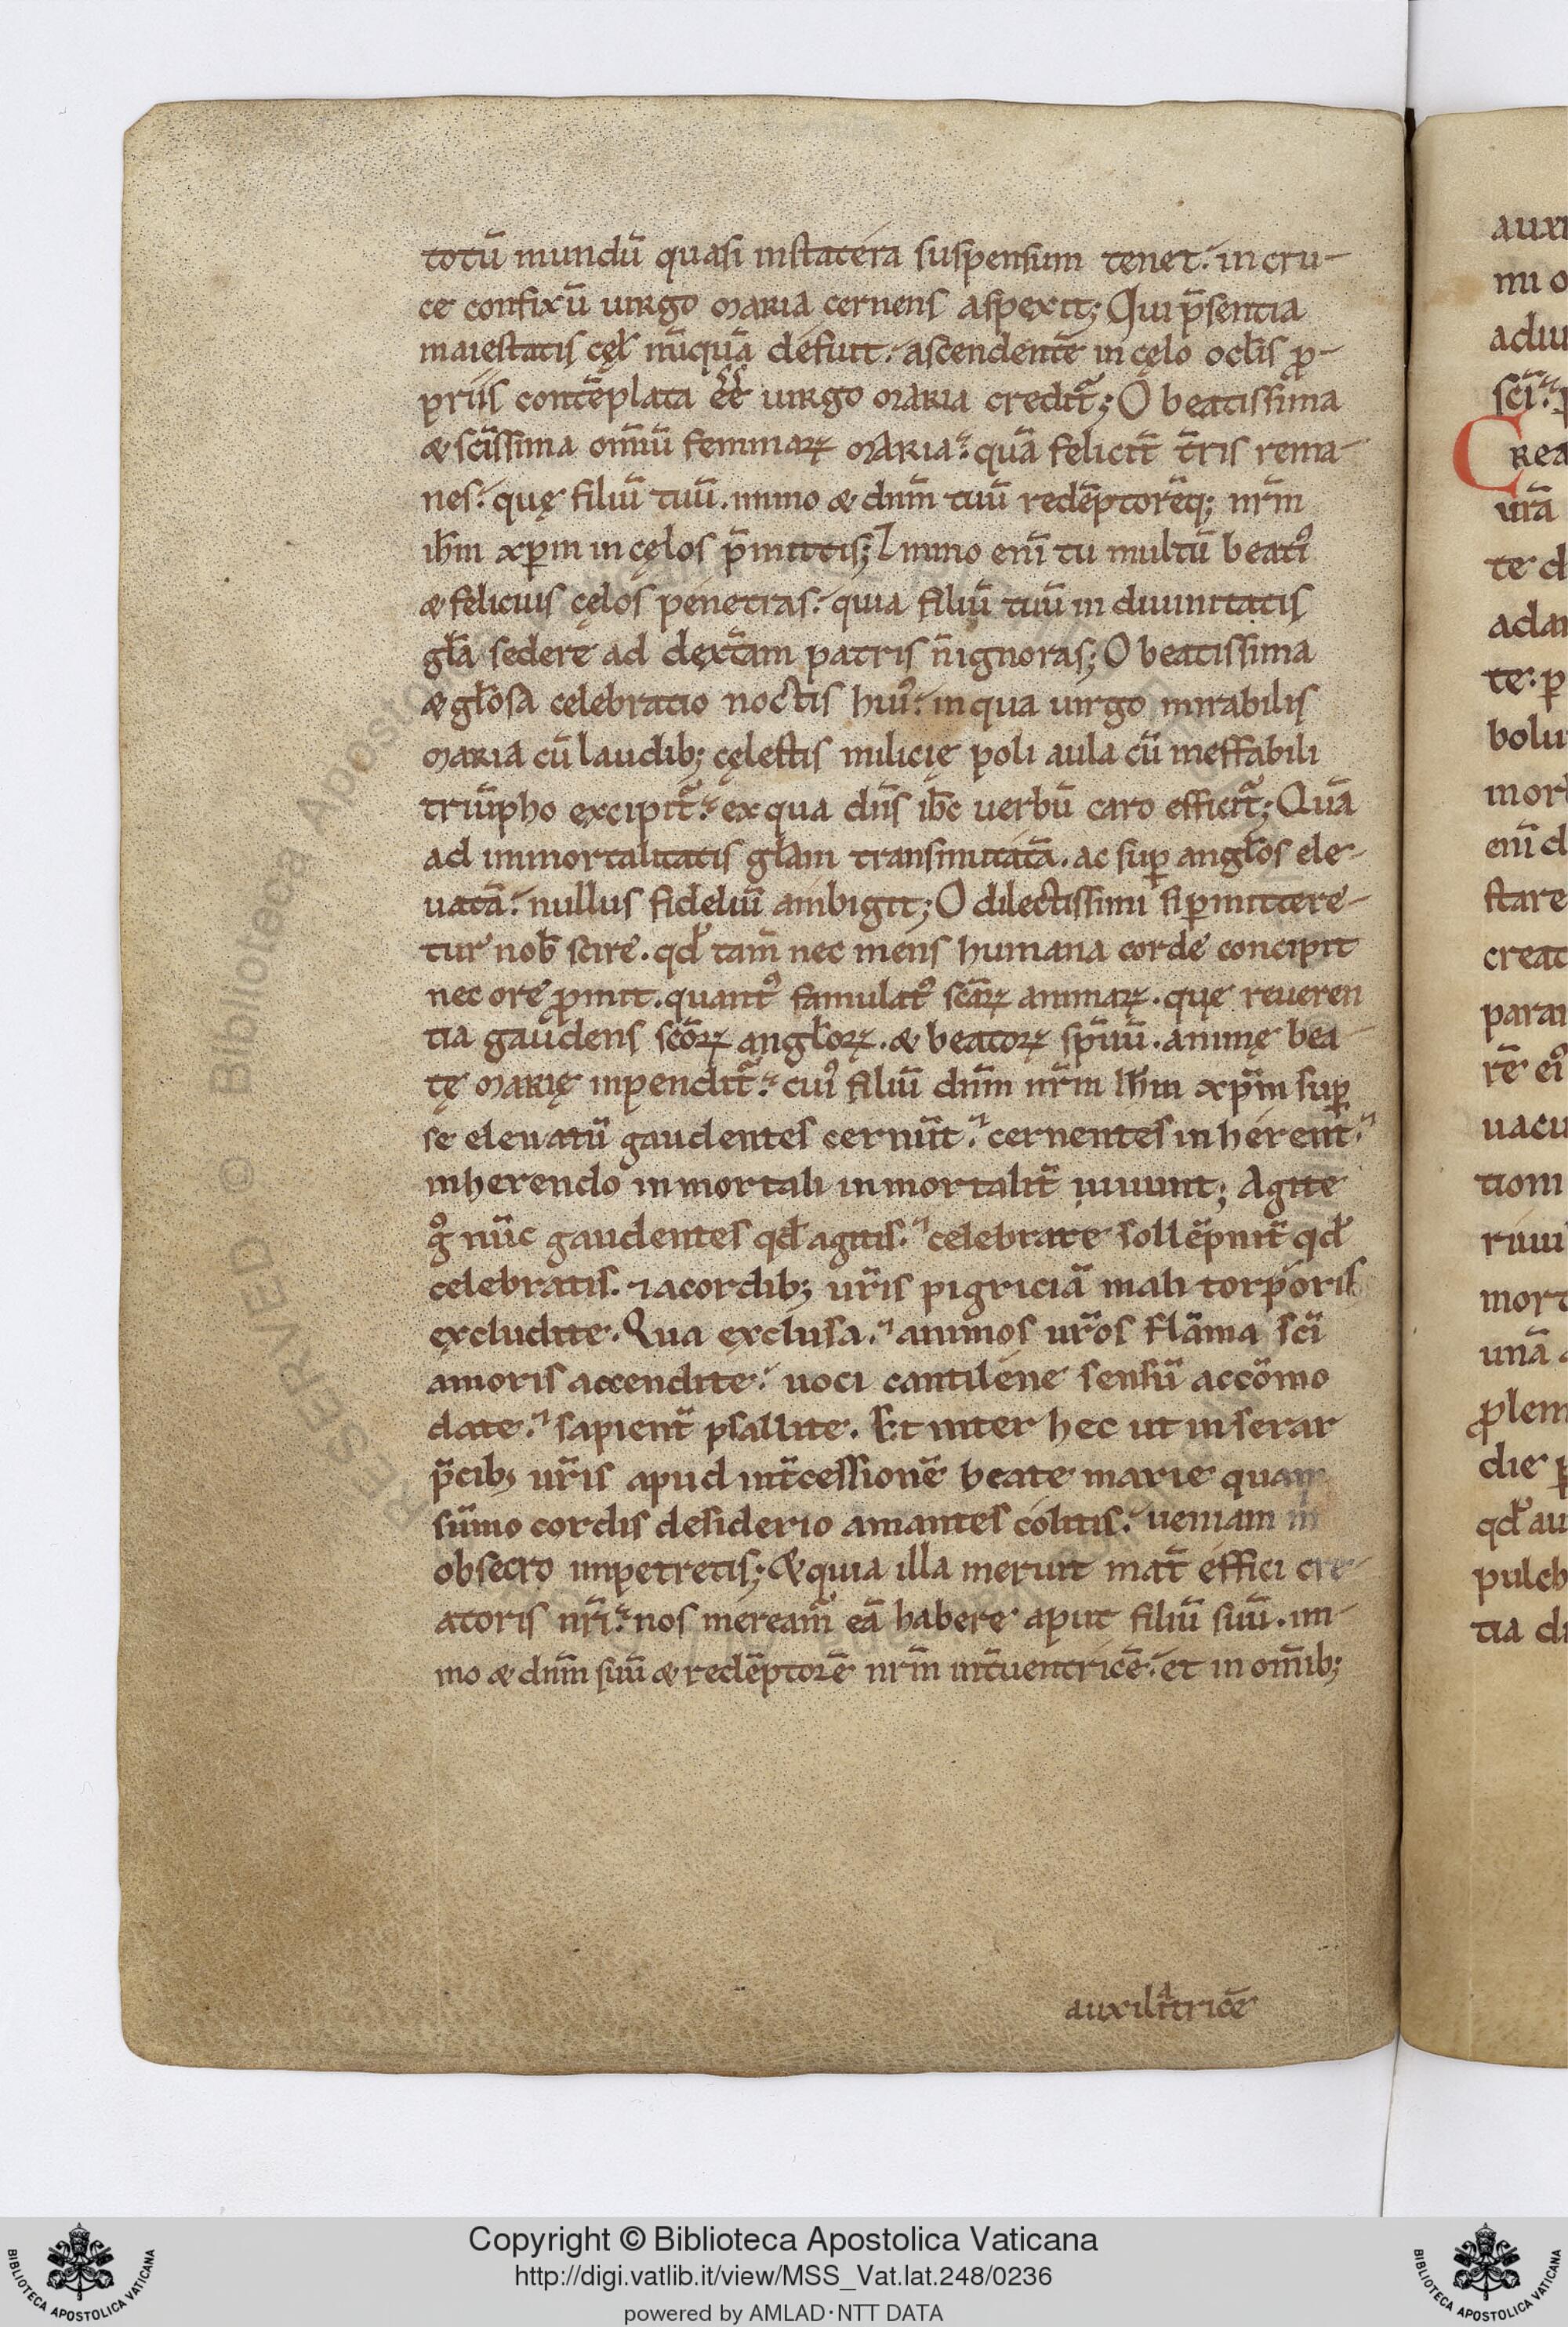 totū mundū quasi instatera suspensum tenet. in cru-
ce confixū uirgo maria cernens aspexit; Qui p̄sentia
maiestatis cęl̄ nūquā defuit. ascendentē in cęlo ocl̄is ꝓ-
priis contēplata ēē uirgo maria credit᷑; O beatissima
& sc̄issima om̄iū feminaꝝ maria. quā felicit̄ t̄ris rema-
nes. quę filiū tuū. immo & dnm̄ tuū redēptorēq; nr̄m
ih̄m xp̄m in cęlos p̄mittis; Immo eni̅ tu multū beatiꝰ
& felicius cęlos penetras. quia filiū tuū in diuinitatis
gl̄a sedere ad dext̄am patris n̄ ignoras; O beatissima
& gl̄osa celebratio noctis huiꝰ. in qua uirgo mirabilis
maria cū laudib; cęlestis milicię poli aula cū ineffabili
triūpho excipit᷑. ex qua dn̄s ih̄c uerbū caro efficit᷑; Quā
ad immortalitatis gl̄am transmutatā. ac suꝑ angl̄os ele-
uatā. nullus fideliū ambigit; O dilectissimi si ꝑmittere-
tur nob̄ scire. qd̄ tam̄ nec mens humana corde concipit
nec ore ꝓmit. quantꝰ famulatꝰ sc̄aꝝ animaꝝ. que reueren
tia gaudens sc̄oꝝ angl̄oꝝ. & beatoꝝ sp̄iuū. animę bea-
tę marię inpendit᷑. cuiꝰ filiū dnm̄ nr̄m ih̄m xp̄m suꝑ
se eleuatū gaudentes cernūt. cernentes inherent.
inherendo inmortali inmortalit̄ uiuunt; Agite
g̊ nūc gaudentes qd̄ agitis. celebrare sollēpnit̄ qd̄
celebratis. ⁊ a cordib; ur̄is pigriciā mali torporis
excludite. Qua exclusa. animos ur̄os flāma sc̄i
amoris accendite. uoci cantilene sensū accōmo
date. sapient̄ psallite. Et inter hec ut inserar
p̄cib; ur̄is apud int̄cessionē beate marie quam
sūmo cordis desiderio amantes colitis. ueniam m̄
obsecro impetretis; & quia illa meruit mat̄ effici cre-
atoris nr̄i. nos meream̄ eā habere aput filiū suū. im-
mo & dnm̄ suū & redēptorē nr̄m int̄uentricē. et in om̄ib;
auxiliatricē
auxi
mi o
adiu
sc̄i.
Crea
urā
te d
adam
te. ꝑ
bolu
mor
eni̅ d
stare
creat
parai
rē eiꝰ
uacu
tioni
riuii
mort
unā
ꝓlem
die
qd̄ au
pulch
tia di
RESERVED © Biblioteca Apostolica Vaticana
Copyright © Biblioteca Apostolica Vaticana
http://digi.vatlib.it/view/MSS_Vat.lat.248/0236
powered by AMLAD·NTT DATA
BIBLIOTECA APOSTOLICA VATICANA
BIBLIOTECA APOSTOLICA VATICANA